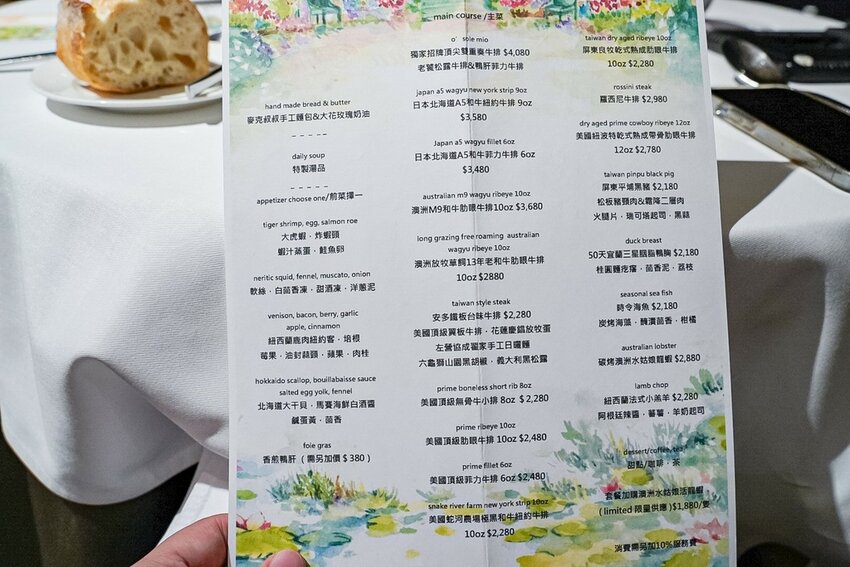 hand made bread & butter
麥克叔叔手工麵包&大花玫瑰奶油
- - - - -
daily soup
特製湯品
- - - - -
appetizer choose one/前菜擇一
tiger shrimp, egg, salmon roe
大虎蝦．炸蝦頭
蝦汁蒸蛋．鮭魚卵
neritic squid, fennel, muscato, onion
軟絲．白茴香凍．甜酒凍．洋蔥泥
venison, bacon, berry, garlic
apple, cinnamon
紐西蘭鹿肉紐約客．培根
莓果．油封蒜頭．蘋果．肉桂
hokkaido scallop, bouillabaisse sauce
salted egg yolk, fennel
北海道大干貝．馬賽海鮮白酒醬
鹹蛋黃．茴香
foie gras
香煎鴨肝（需另加價＄380）
main course /主菜
o' sole mio
獨家招牌頂尖雙重奏牛排 $4,080
老饕松露牛排&鴨肝菲力牛排
japan a5 wagyu new york strip 9oz
日本北海道A5和牛紐約牛排 9oz
$3,580
Japan a5 wagyu fillet 6oz
日本北海道A5和牛菲力牛排 6oz
$3,480
australian m9 wagyu ribeye 10oz
澳洲M9和牛肋眼牛排10oz $3,680
long grazing free roaming australian
wagyu ribeye 10oz
澳洲放牧草飼13年老和牛肋眼牛排
10oz $2880
taiwan style steak
安多鐵板台味牛排 $2,280
美國頂級翼板牛排．花蓮慶錩放牧蛋
左營協成獨家手工日曬麵
六龜獅山園黑胡椒、義大利黑松露
prime boneless short rib 8oz
美國頂級無骨牛小排 8oz $ 2,280
prime ribeye 10oz
美國頂級肋眼牛排 10oz $2,480
prime fillet 6oz
美國頂級菲力牛排 6oz $2,480
snake river farm new york strip 10oz
美國蛇河農場極黑和牛紐約牛排
10oz $2,280
taiwan dry aged ribeye 10oz
屏東良牧乾式熟成肋眼牛排
10oz $2,280
rossini steak
羅西尼牛排 $2,980
dry aged prime cowboy ribeye 12oz
美國紐波特乾式熟成帶骨肋眼牛排
12oz $2,780
taiwan pinpu black pig
屏東平埔黑豬 $2,180
松板豬頸肉&霜降二層肉
火腿片．瑞可塔起司．黑蒜
duck breast
50天宜蘭三星胭脂鴨胸 $2,180
桂圓麵疙瘩．茴香泥．荔枝
seasonal sea fish
時令海魚 $2,180
炭烤海藻．醃漬茴香．柑橘
australian lobster
碳烤澳洲水姑娘龍蝦 $2,880
lamb chop
紐西蘭法式小羔羊 $2,280
阿根廷辣醬．蕃薯．羊奶起司
dessert/coffee, tea
甜點/咖啡．茶
套餐加購澳洲水姑娘活龍蝦
(limited 限量供應 )$1,880/隻
消費需另加10%服務費